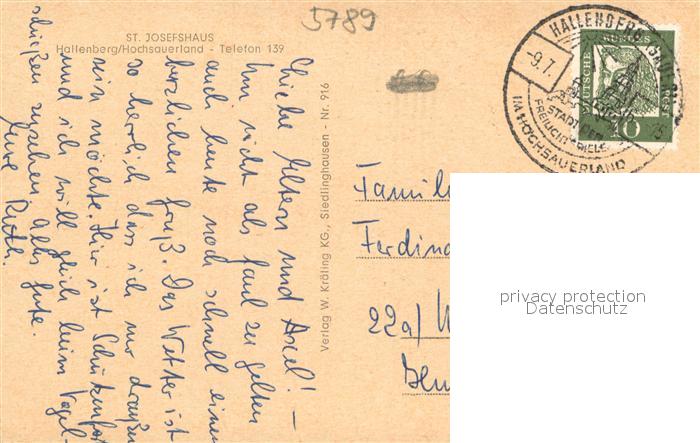 5789
ST. JOSEFSHAUS
Hallenberg/Hochsauerland - Telefon 139
HALLENBERG (SAUERL)
-9.7.
STADT DER
FREILICHTSPIELE
IM HOCHSAUERLAND
DEUTSCHE BUNDESPOST
10
Liebe Eltern und Axel! –
Um nicht als faul zu gelten
auch heute noch schnell einen
herzlichen Gruß. Das Wetter ist
so herrlich, dass ich nur draußen
sein möchte. Hier ist Schützenfest
und ich will gleich beim Vogel-
schießen zusehen. Alles Gute.
Eure Ruth.
Verlag W. Kräling KG., Siedlinghausen - Nr. 916
Famili
Ferdin
22a/ W
privacy protection
Datenschutz